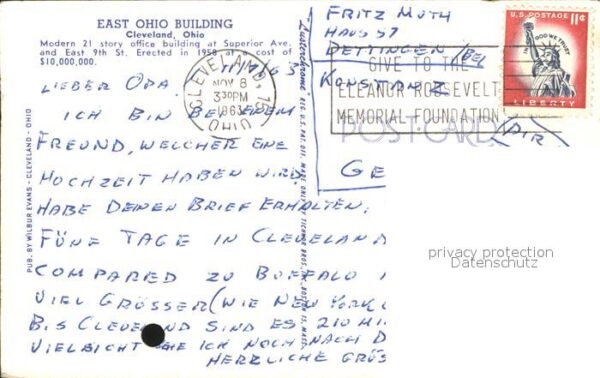 EAST OHIO BUILDING
Cleveland, Ohio
Modern 21 story office building at Superior Ave.
and East 9th St. Erected in 1958 at a cost of
$10,000,000.
LIEBER OPA.
ICH BIN BEI EINEM
FREUND, WELCHER EINE
HOCHZEIT HABEN WIRD.
HABE DEINEN BRIEF ERHALTEN.
FÜNF TAGE IN CLEVELAND
COMPARED ZU BUFFALO
VIEL GRÖSSER (WIE NEW YORK
BIS CLEVELAND SIND ES 210 MIL
VIELEICHT ICH NOCH NACH D
HERZLICHE GRÜS
PUB. BY WILBUR EVANS - CLEVELAND - OHIO
CLEVELAND,
NOV 8
3 30PM
1963
OHIO
GIVE TO THE
ELEANOR ROOSEVELT
MEMORIAL FOUNDATION
FRITZ MUTH
HAUS 57
DETTINGEN /BEI
KONSTANZ
GE
AIR
POST CARD
U.S. POSTAGE 11¢
IN GOD WE TRUST
LIBERTY
privacy protection
Datenschutz